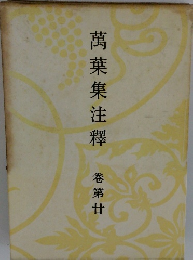 萬葉集注釋
卷第廿